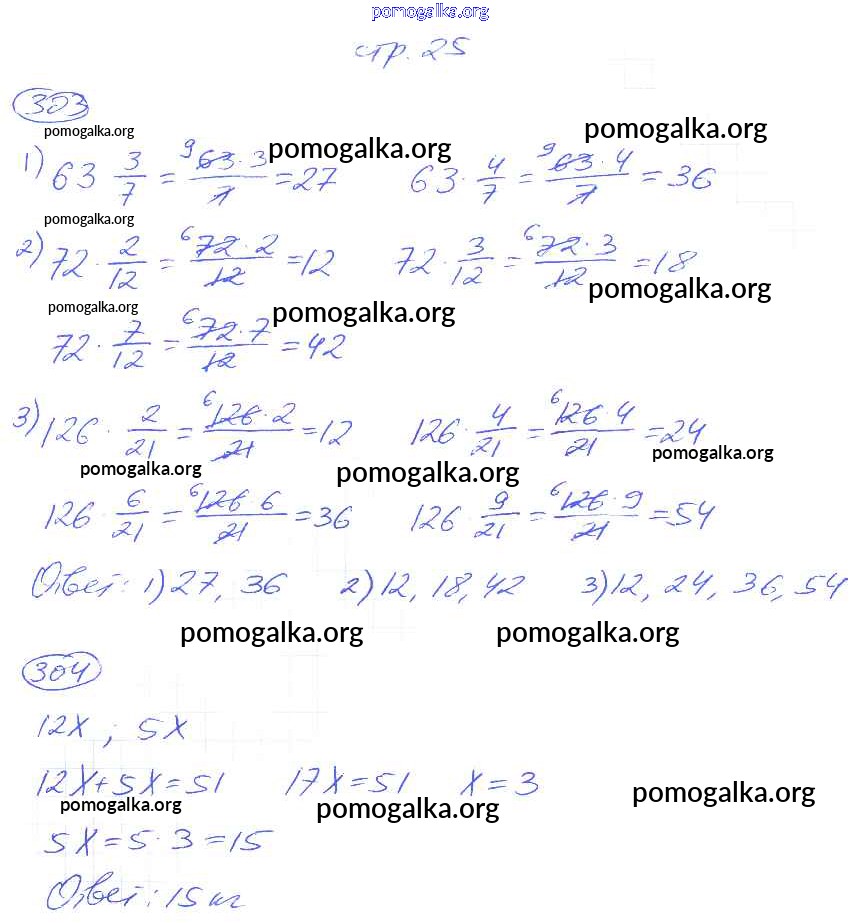 pomogalka.org
стр. 25
303
pomogalka.org pomogalka.org pomogalka.org
1) 63 3/7 = 9 63·3/7 = 27 63 · 4/7 = 9 63·4/7 = 36
pomogalka.org
2) 72 · 2/12 = 6 72·2/12 = 12 72 · 3/12 = 6 72·3/12 = 18
pomogalka.org pomogalka.org pomogalka.org
72 · 7/12 = 6 72·7/12 = 42
3) 126 · 2/21 = 6 126·2/21 = 12 126 · 4/21 = 6 126·4/21 = 24
pomogalka.org pomogalka.org pomogalka.org
126 · 6/21 = 6 126·6/21 = 36 126 · 9/21 = 6 126·9/21 = 54
Ответ: 1) 27, 36 2) 12, 18, 42 3) 12, 24, 36, 54
pomogalka.org pomogalka.org
304
12x ; 5x
12x+5x=51 17x=51 x=3
pomogalka.org pomogalka.org pomogalka.org
5x=5·3=15
Ответ: 15 кг